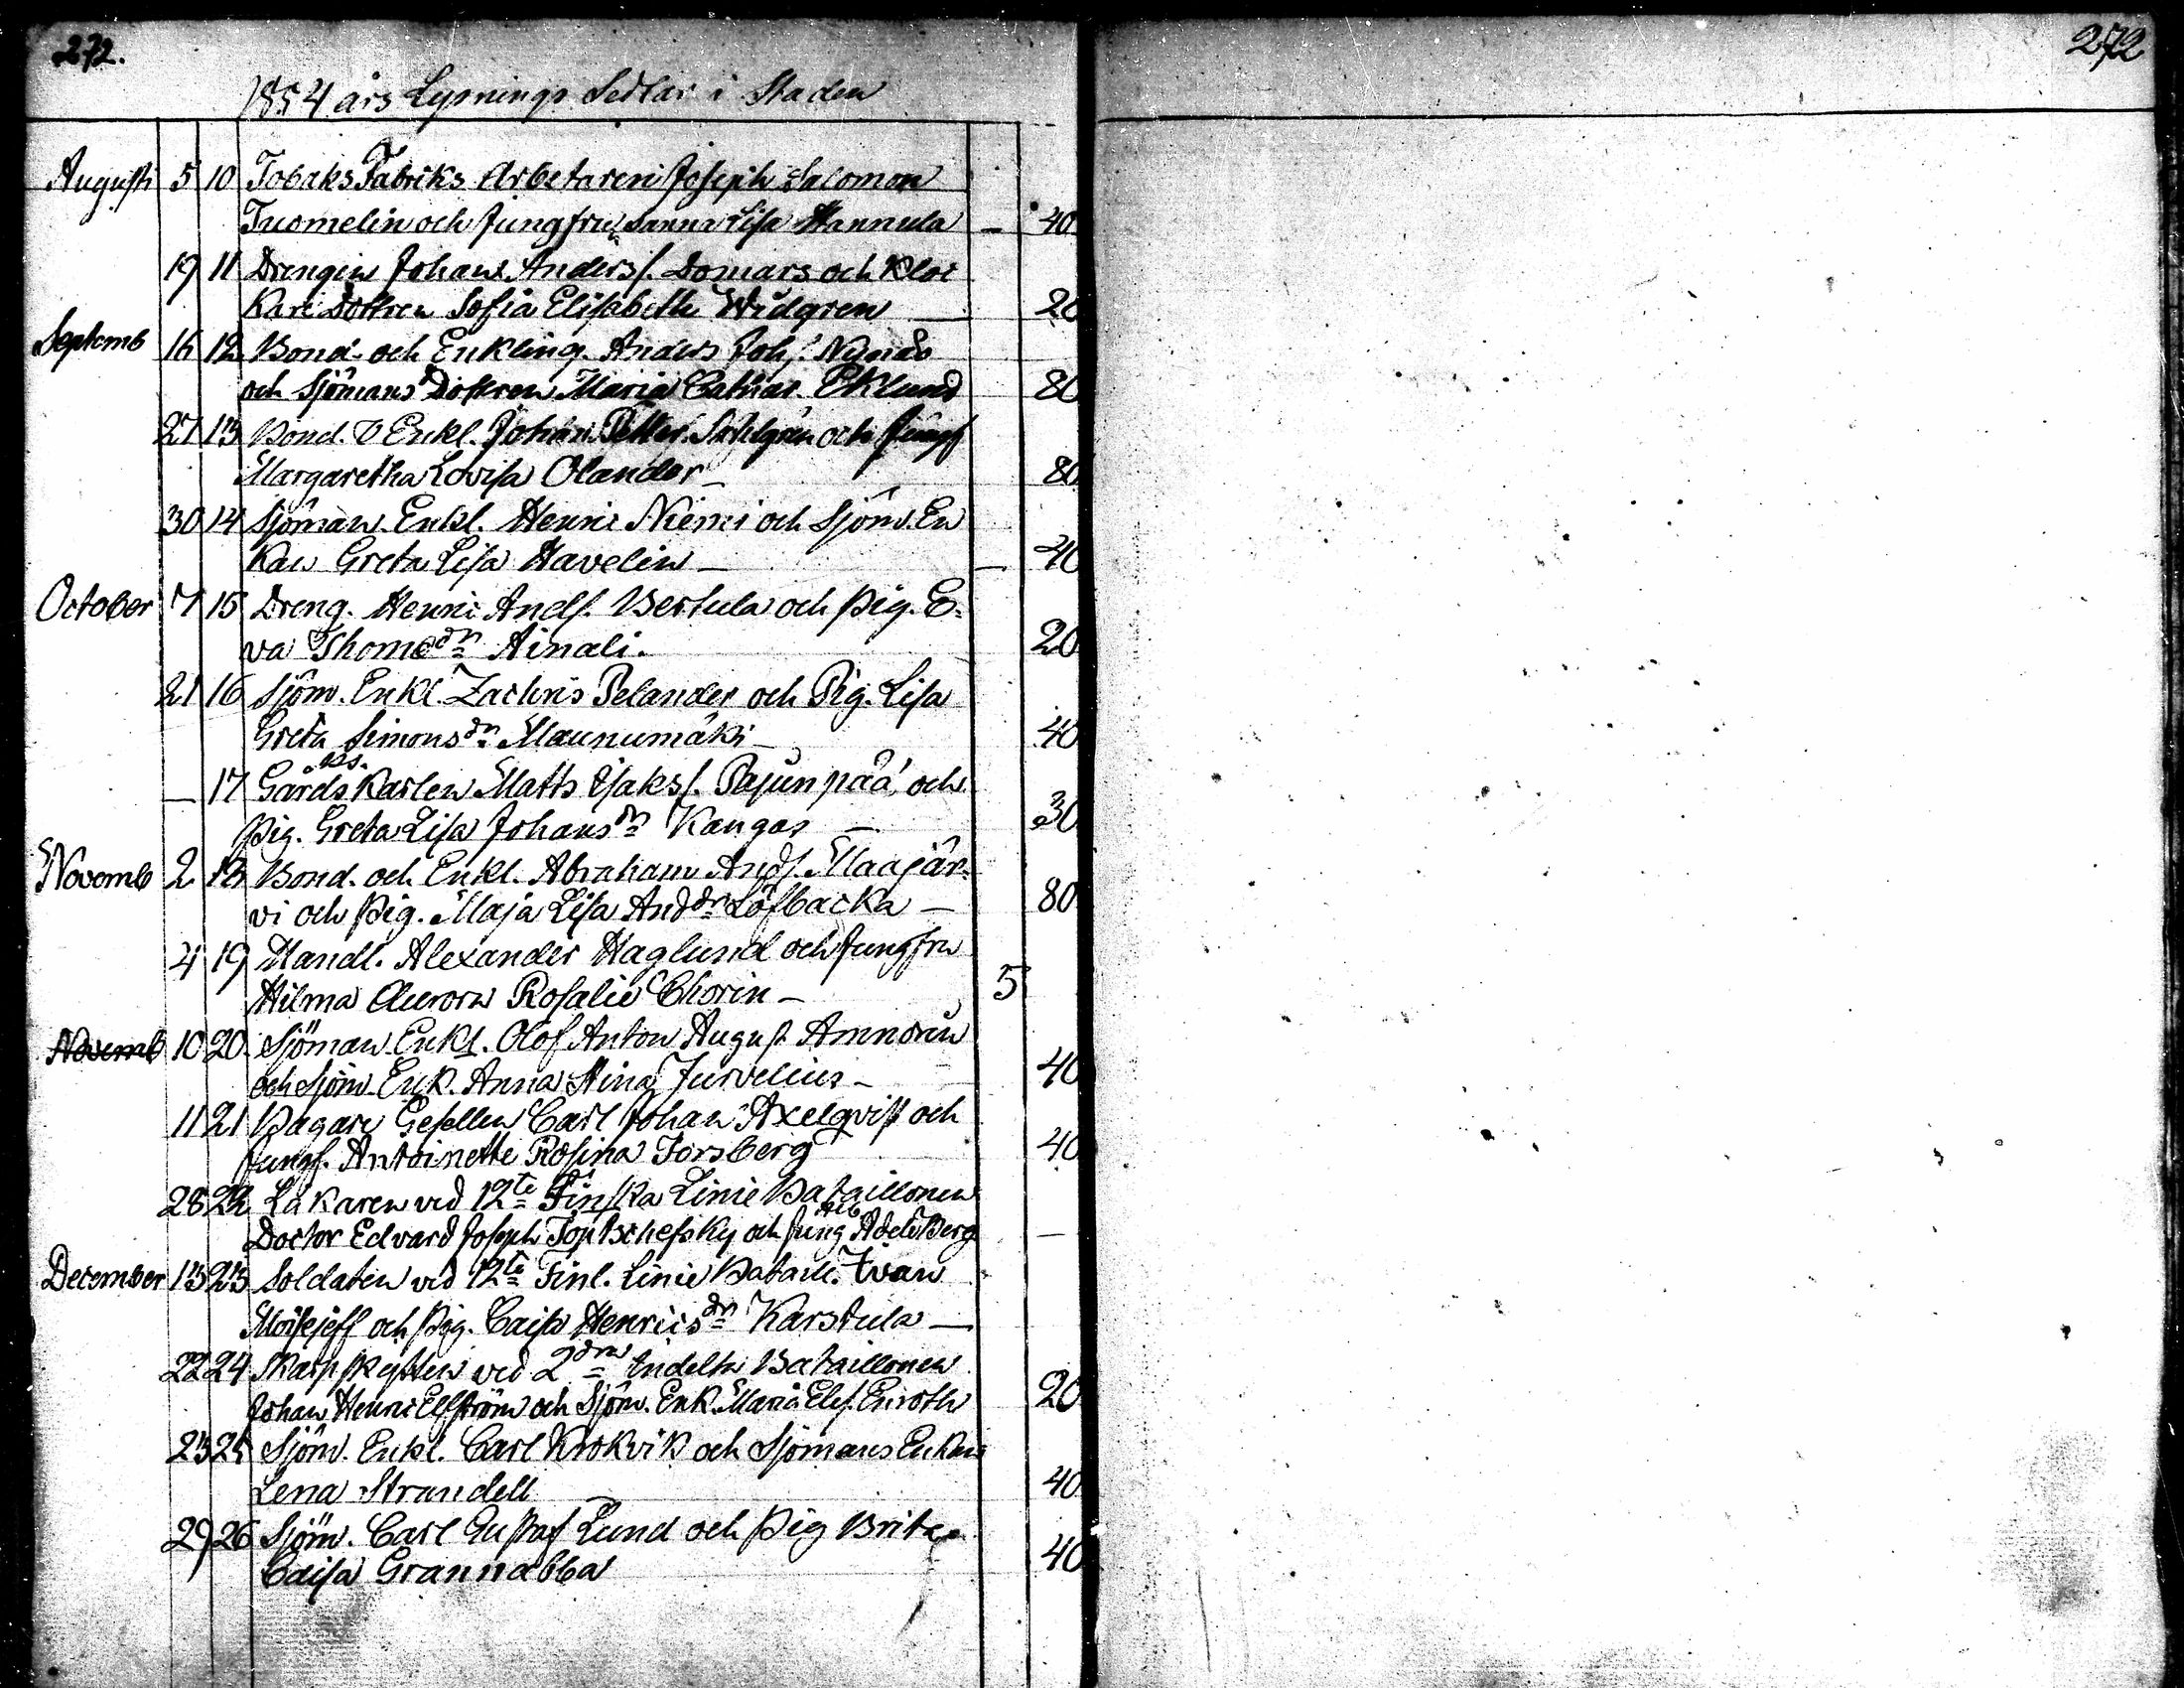 272.
272
1854 års Lysnings Sedlar i Staden
Augusti 5 10 Tobaks Fabriks Arbetaren Joseph Salomon
Tuomelin och Jungfru Sanna Lisa Hannula — 40
19 11 Drengen Johan Anders s. Domars och Kloc
kare Dottren Sofia Elisabeth Widgren — 20
Septemb 16 12 Bond. och Enkling. Anders Joh s. Nynäs
och Sjömans Dottren Maria Cathar. Eklund 80
27 13 Bond. O Enkl. Johan Petter Sahlgren och Jungf
Margaretha Lovisa Olander — 80
30 14 Sjöman. Enkl. Henric Niemi och Sjöm. En
kan Greta Lisa Havelin — 40
October 7 15 Dreng. Henric And s. Vertula och Pig. E-
va Thome dr Ainali. 20
21 16 Sjöm. Enkl. Zachris Pelander och Pig. Lisa
Greta Simons dr Maunumäki — 40
— 17 Gårds Karlen Matts Isaks s. Pajunpää och
Pig. Greta Lisa Johans dr Kangas — 30
Novemb 2 18 Bond. och Enkl. Abraham And s. Maajär-
vi och Pig. Maja Lisa And dr Löfbacka — 80
4 19 Handl. Alexander Haglund och Jungfru
Hilma Aurora Rosalie Chorin — 5
Novemb 10 20 Sjöman Enkl. Olof Anton August Amnorin
och Sjöm. Enk. Anna Stina Jurvelius — 40
11 21 Bagare Gesellen Carl Johan Axelqvist och
Jungf. Antoinette Rosina Forsberg 40
28 22 Läkaren ved 12te Finska Linie Bataillonen
Doctor Edvard Joseph Toptschefsky och Jung Adele Berg —
December 13 23 Soldaten ved 12te Finl. Linie Bataill. Ivan
Moisejeff och Pig. Caisa Henrics dr Karstula —
22 24 Skarpskytten ved 2dra Indelta Bataillonen
Johan Henric Elfström och Sjöm. Enk. Maria Elis. Enroth 20
23 25 Sjöm. Enkl. Carl Krokvik och Sjömans Enkan
Lena Strandell — 40
29 26 Sjöm. Carl Gustaf Lund och Pig Brita
Caisa Grannabba 40